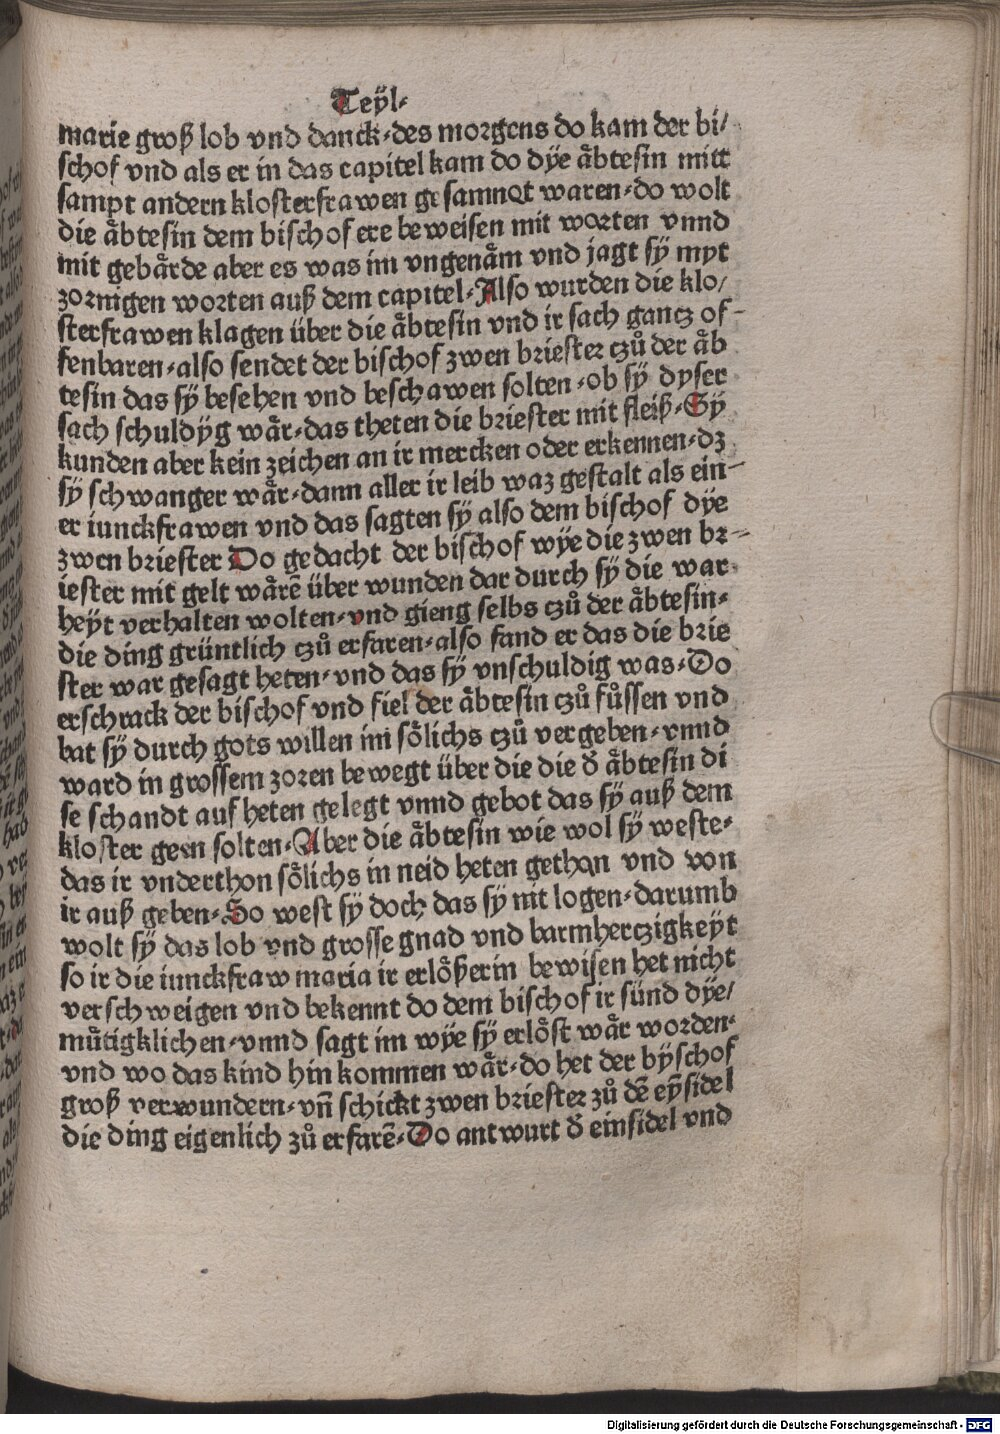 Teÿl⸗
marie groß lob vnd danck⸗des morgens do kam der bi/
schof vnd als er in das capitel kam do dÿe åbtesin mitt
sampt andern klosterfrawen gesamnet waren⸗do wolt
die åbtesin dem bischof ere beweisen mit worten vnnd
mit gebårde aber es was im vngenåm vnd jagt sÿ myt
zornigen worten auß dem capitel⸗Also wurden die klo/
sterfrawen klagen über die åbtesin vnd ir sach gancz of⸗
fenbaren⸗also sendet der bischof zwen briester czů der åb
tesin das sÿ besehen vnd beschawen solten⸗ob sÿ dyser
sach schuldÿg wår⸗das theten die briester mit fleiß⸗Sÿ
kunden aber kein zeichen an ir mercken oder erkennen⸗dz
sÿ schwanger wår⸗dann aller ir leib waz gestalt als ein⸗
er iunckfrawen vnd das sagten sÿ also dem bischof dÿe
zwen briester Do gedacht der bischof wÿe die zwen br⸗
iester mit gelt wårē über wunden dar durch sÿ die war
heÿt verhalten wolten⸗vnd gieng selbs czů der åbtesin⸗
die ding grüntlich czů erfaren⸗also fand er das die brie
ster war gesagt heten⸗vnd das sÿ vnschuldig was⸗Do
erschrack der bischof vnd fiel der åbtesin czů fůssen vnd
bat sÿ durch gots willen im sőlichs czů vergeben⸗vnnd
ward in grossem zoren bewegt über die die d̄ åbtesin di
se schandt auf heten gelegt vnnd gebot das sÿ auß dem
kloster geen solten⸗Aber die åbtesin wie wol sÿ weste⸗
das ir vnderthon sőlichs in neid heten gethan vnd von
ir auß geben⸗So west sÿ doch das sÿ nit logen⸗darumb
wolt sÿ das lob vnd grosse gnad vnd barmherczigkeÿt
so ir die iunckfraw maria ir erlőßerin bewisen het nicht
verschweigen vnd bekennt do dem bischof ir sünd dÿe/
můtigklichen⸗vnnd sagt im wÿe sÿ erlőst wår worden⸗
vnd wo das kind hin kommen wår⸗do het der bÿschof
groß verwundern⸗vn̄ schickt zwen briester zů dē eÿsidel
die ding eigenlich zů erfarē⸗Do antwurt d̄ einsidel vnd
Digitalisierung gefördert durch die Deutsche Forschungsgemeinschaft - DFG